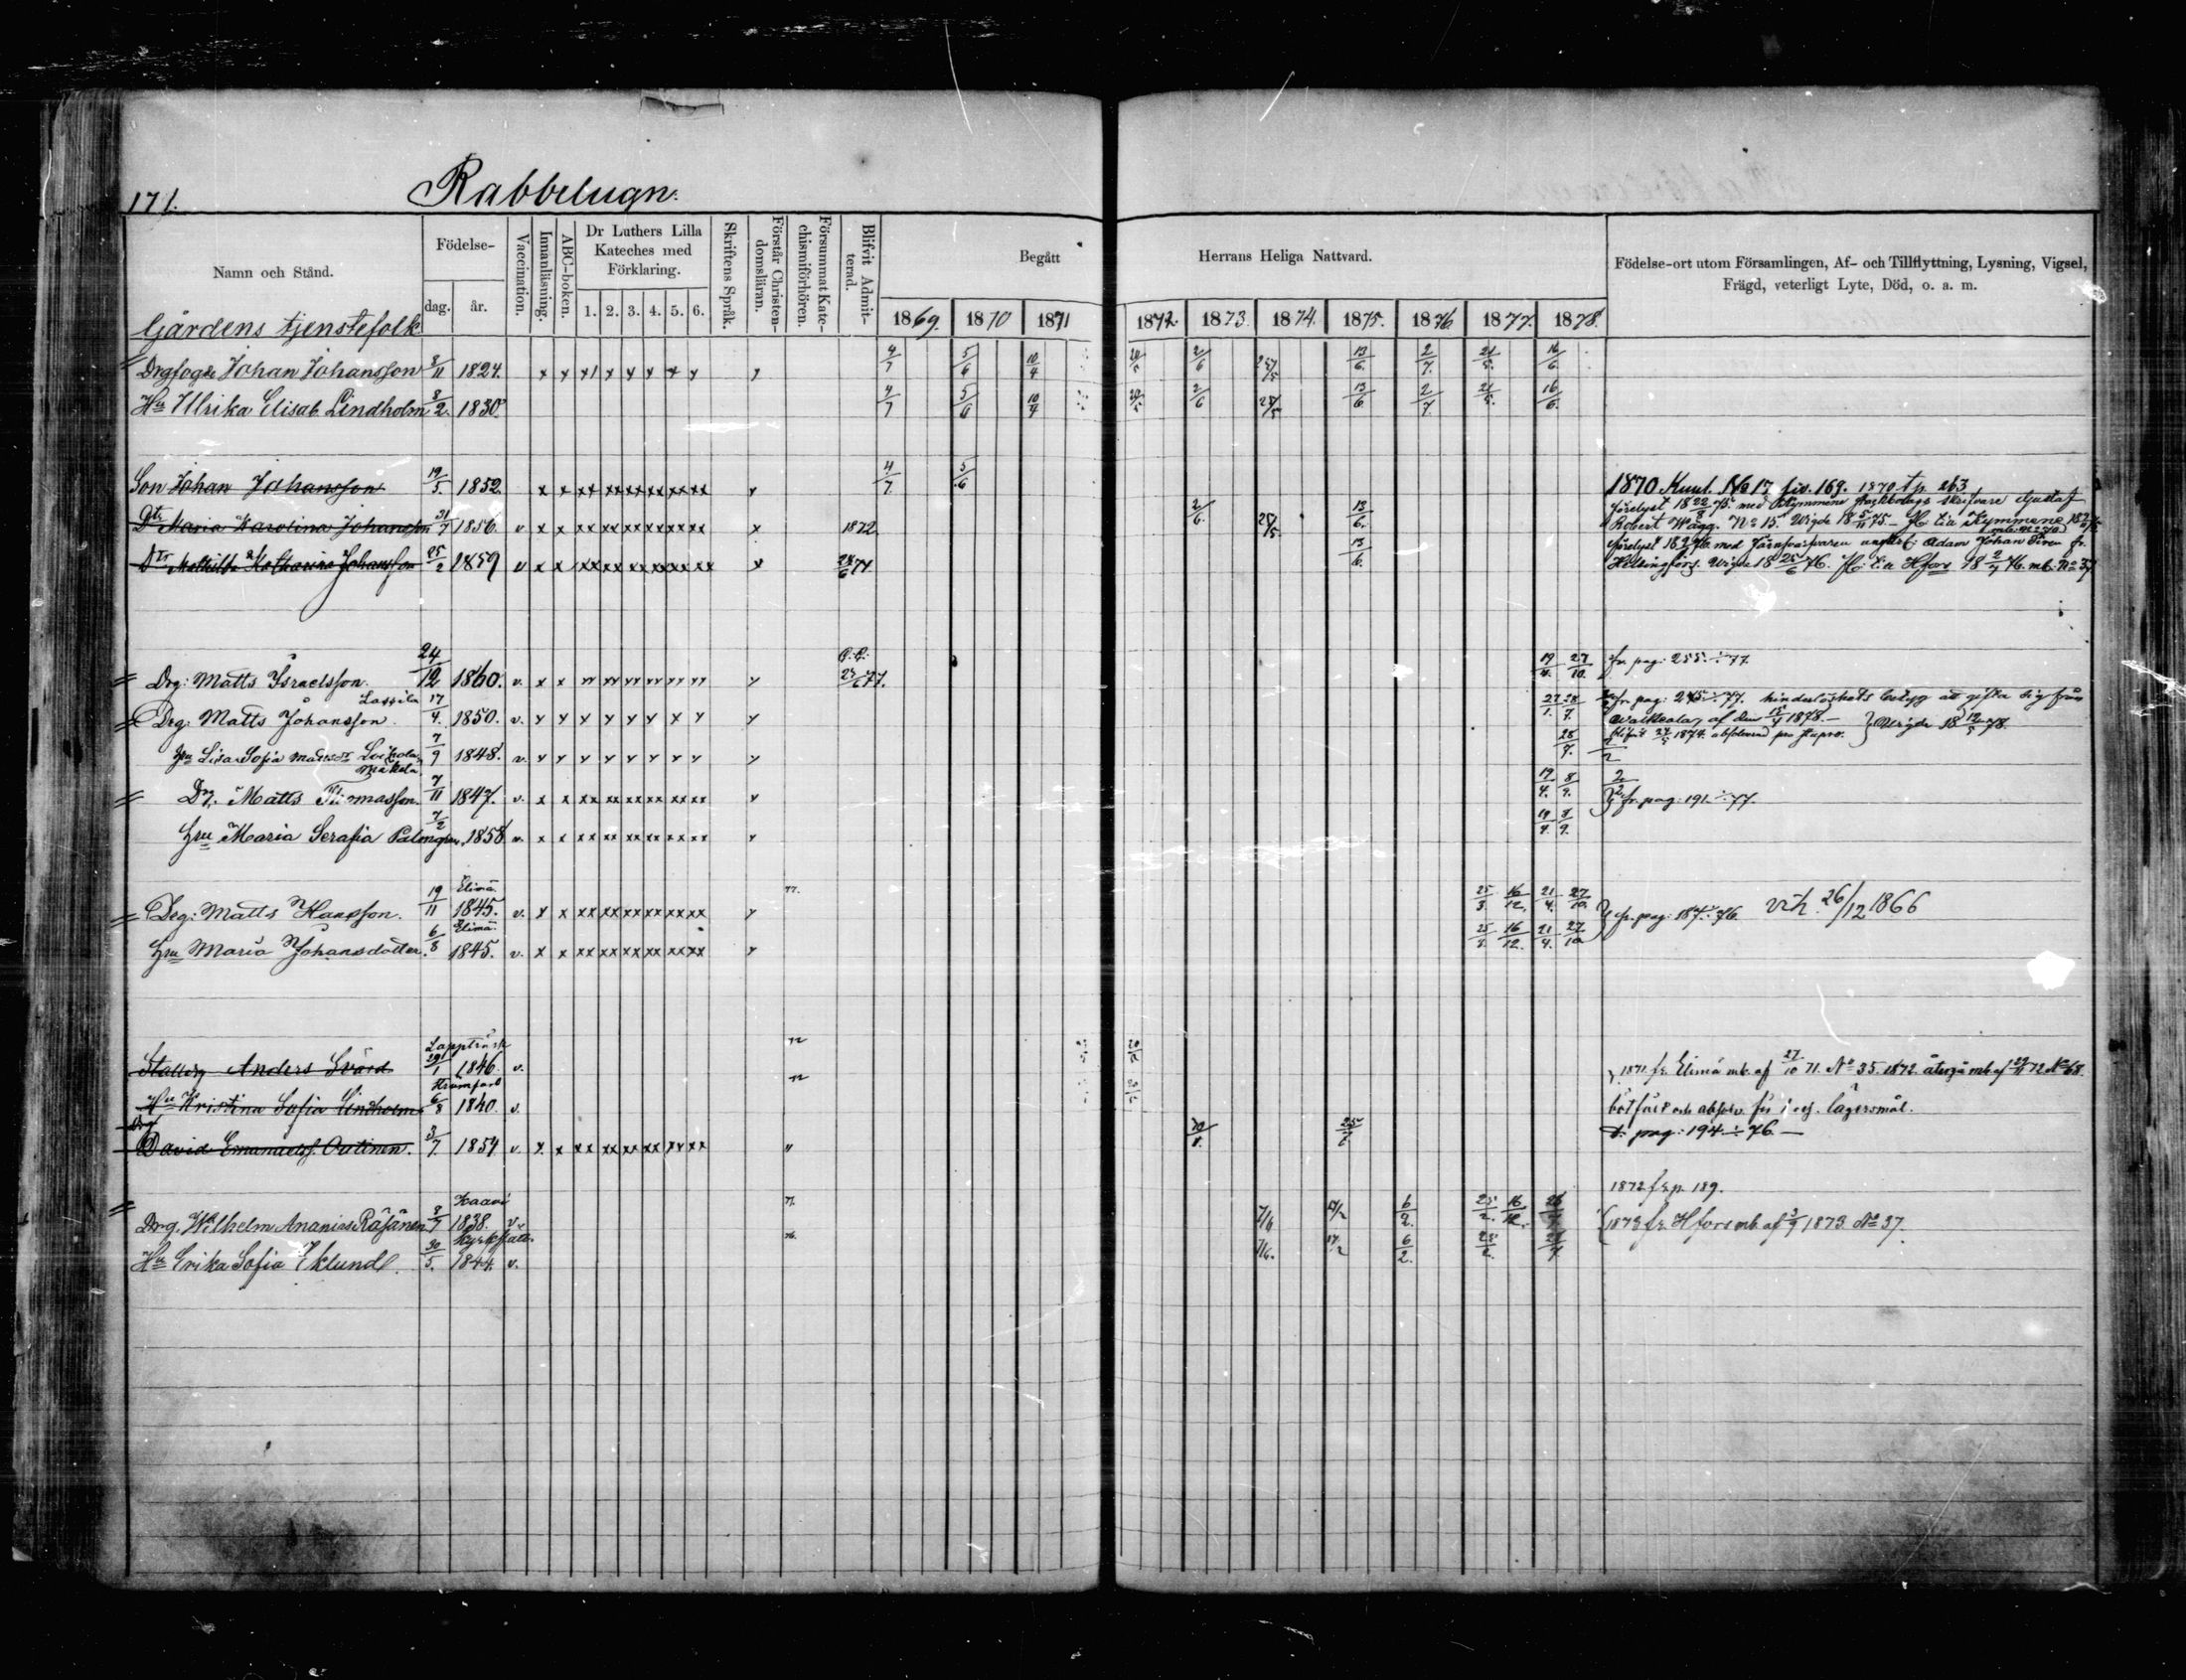 171. Rabbelugn.
Namn och Stånd. Födelse- dag. år. Vaccination. Innanläsning. ABC-boken. Dr Luthers Lilla Kateches med Förklaring. 1. 2. 3. 4. 5. 6. Skriftens Språk. Förstår Christen-domsläran. Försummat Kate-chismiförhören. Blifvit Admit-terad. Begått Herrans Heliga Nattvard. Födelse-ort utom Församlingen, Af- och Tillflyttning, Lysning, Vigsel, Frägd, veterligt Lyte, Död, o. a. m.
1869. 1870 1871 1872. 1873. 1874. 1875. 1876 1877. 1878.
Gårdens tjenstefolk
Drgfogde Johan Johansson 8/11 1824. x x x x x x x x 4/7 5/6 10/4 20/5 2/6 25/5 13/6. 2/7. 21/5. 16/6.
Hu Ulrika Elisab. Lindholm 8/2. 1830. 4/7 5/6 10/4 20/5 2/6 25/5 13/6 2/7. 21/5. 16/6.
Son Johan Johansson 19/5. 1852. x x xx xx xx xx xx xx x 4/7. 5/6 1870 Kunl. No 17 fiv. 169. 1870 t.p. 263
Dtr Maria Karolina Johansson 31/7 1856. v x x xx xx xx xx xx xx x 1872 2/6. 25/5. 13/6. Förelyst 18 22/8 75. med Kymmene skrifvare Gustaf
Robert Wägg. No 15. Wigde 18 5/11 75 - fl. till Kymmene
Dtr Mathilda Katharina Johansson 25/2 1859 v x x xx xx xx xx xx xx x 24/6 74. 13/6. Förelyst med Adam Johan Siren fr.
Helsingfors. Wigde 18 25/6 76. fl. till Hfors 18 2/7 76. mb. No 37
Drg: Matts Israelsson. 24/12 1860. v. x x x 24/6 77. 19/4. 27/10. fr. pag: 255.÷77.
Drg: Matts Johansson Lassila 17/4. 1850. v. x x x x x x x x x 27/1. 28/7. fr. pag: 245÷77. hinderlöshets betyg att gifta sig från
Walkeala, af den 15/4 1878.- Wigde 18 12/5 78.
Hru Lisa Sofia Matsdr 7/9 1848. v. x x x x x x x x x 28/7. 1874. absolverad
Makela
Drg. Matts Thomasson. 7/11 1847. v. x x xx xx xx xx xx xx x 19/4. 8/9. fr. pag: 191÷77.
Hru Maria Serafia Palmgren 7/2 1858 v. x x xx xx xx xx xx xx x 19/4. 8/9.
Drg: Matts Hansson. 19/11 Elimä 1845. v. x x xx xx xx xx xx xx x 77. 25/3. 16/12. 21/4. 27/10. fr. pag: 187÷76 vih. 26/12 1866
Hru Maria Johansdotter. 6/8 Elimä 1845. v. x x xx xx xx xx xx xx x 25/3. 16/12. 21/4. 27/10
Stalldrg Anders Svärd Lappträsk 29/1 1846. v. 72 20/5 1871. fr. Elimä mb. af 27/10 71. No 35. 1872 återgå mb. af 72 No 68.
Hu Kristina Sofia Lindholm Strömfors 6/8 1840. v. 72 20/5 bötfäld och absolv. för i lägersmål.
Drg David Emanuelss. Outinen. 3/7. 1854 v. x x xx xx xx xx xx xx " 25/7 t. pag: 194÷76.—
1872 fr. p. 189.
Drg. Wilhelm Ananias Räsänen 8/7 Kaavi 1838. v. 77. 7/6 17/2 6/2. 25/2. 16/12. 28/7. 1873 fr. Hfors mb. af 3/9 1873 No 37.
Hu Erika Sofia Eklund 30/5. 1844. v. 76. 7/6. 17/2 6/2. 25/2. 28/7